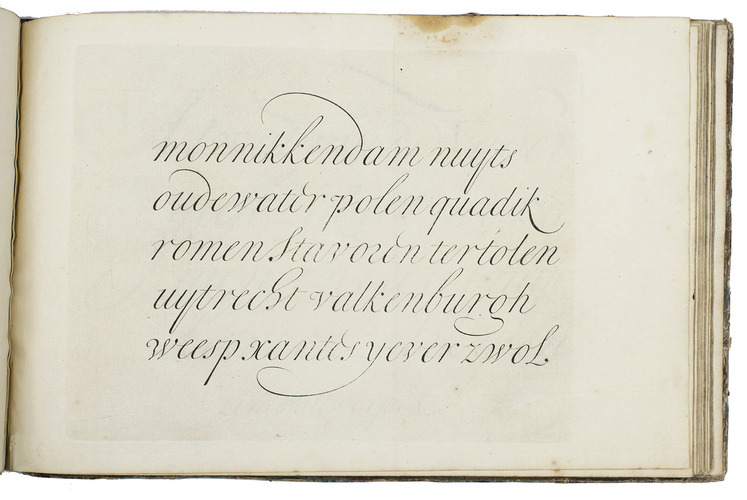 monnikkendam nuyts
oudewater polen quadik
romen stavoren tertolen
uytrecht valkenburgh
weesp xantes yever zwol